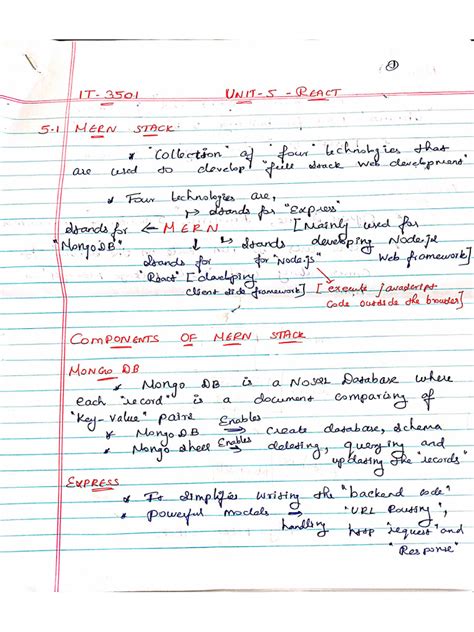 ①
IT-3501 UNIT-5 - REACT
5.1 MERN STACK
* "Collection" of "four" technologies that
are used to develop "full stack web development"
* Four technologies are,
↦ stands for "Express"
stands for ← M E R N [Mainly used for
"MongoDB" ↓ ↳ stands developing Node.js
stands for for "Node.js" Web framework]
"React" [developing
client side framework] [execute javascript
code outside the browser]
COMPONENTS OF MERN STACK
MONGO DB
* Mongo DB is a NoSQL Database where
each "record" is a document comparising of
"Key-Value" pairs
* MongoDB Enables ⇒ Create database, schema
* Mongo shell Enables ⇒ deleting, querying and
updating the "records"
EXPRESS
* It simplifies writing the "backend code"
* Powerful models ⇒ "URL Routing",
handling http "request" and
"Response"